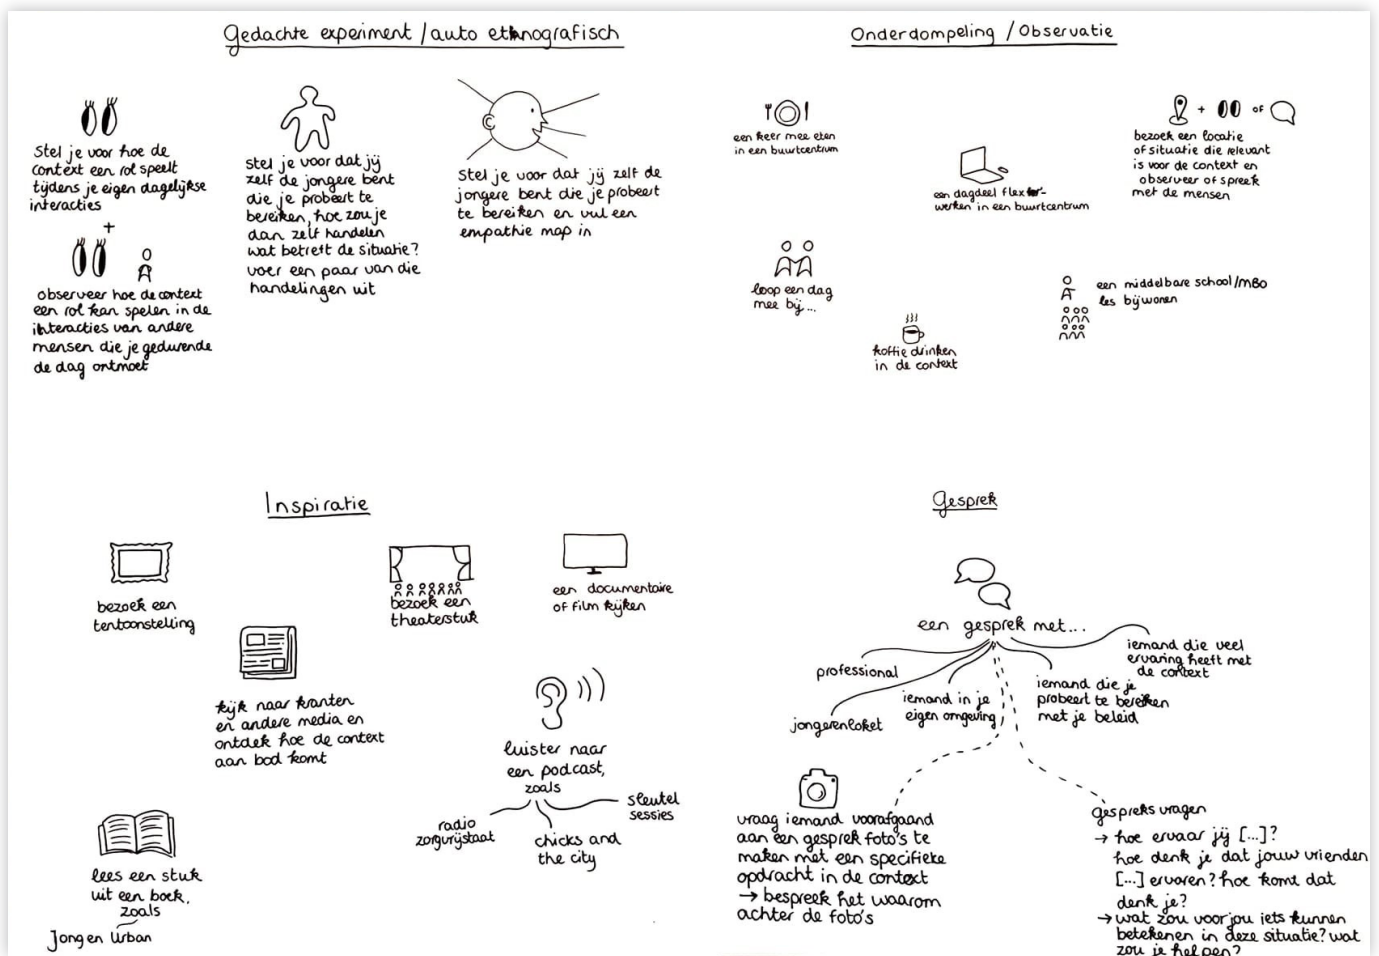 Gedachte experiment / auto etnografisch
stel je voor hoe de
context een rol speelt
tijdens je eigen dagelijkse
interacties
+
observeer hoe de context
een rol kan spelen in de
interacties van andere
mensen die je gedurende
de dag ontmoet
stel je voor dat jij
zelf de jongere bent
die je probeert te
bereiken, hoe zou je
dan zelf handelen
wat betreft de situatie?
voer een paar van die
handelingen uit
stel je voor dat jij zelf de
jongere bent die je probeert
te bereiken en vul een
empathie map in
Onderdompeling / Observatie
een keer mee eten
in een buurtcentrum
een dagdeel flex
werken in een buurtcentrum
+ of
bezoek een locatie
of situatie die relevant
is voor de context en
observeer of spreek
met de mensen
loop een dag
mee bij ...
koffie drinken
in de context
een middelbare school/MBO
les bijwonen
Inspiratie
bezoek een
tentoonstelling
bezoek een
theaterstuk
een documentaire
of film kijken
kijk naar kranten
en andere media en
ontdek hoe de context
aan bod komt
luister naar
een podcast,
zoals
radio
zorgvrijstaat
chicks and
the city
sleutel
sessies
lees een stuk
uit een boek,
zoals
Jong en Urban
Gesprek
een gesprek met...
professional
jongerenloket
iemand in je
eigen omgeving
iemand die je
probeert te bereiken
met je beleid
iemand die veel
ervaring heeft met
de context
vraag iemand voorafgaand
aan een gesprek foto's te
maken met een specifieke
opdracht in de context
→ bespreek het waarom
achter de foto's
gespreks vragen
→ hoe ervaar jij [...]?
hoe denk je dat jouw vrienden
[...] ervaren? hoe komt dat
denk je?
→ wat zou voor jou iets kunnen
betekenen in deze situatie? wat
zou je helpen?